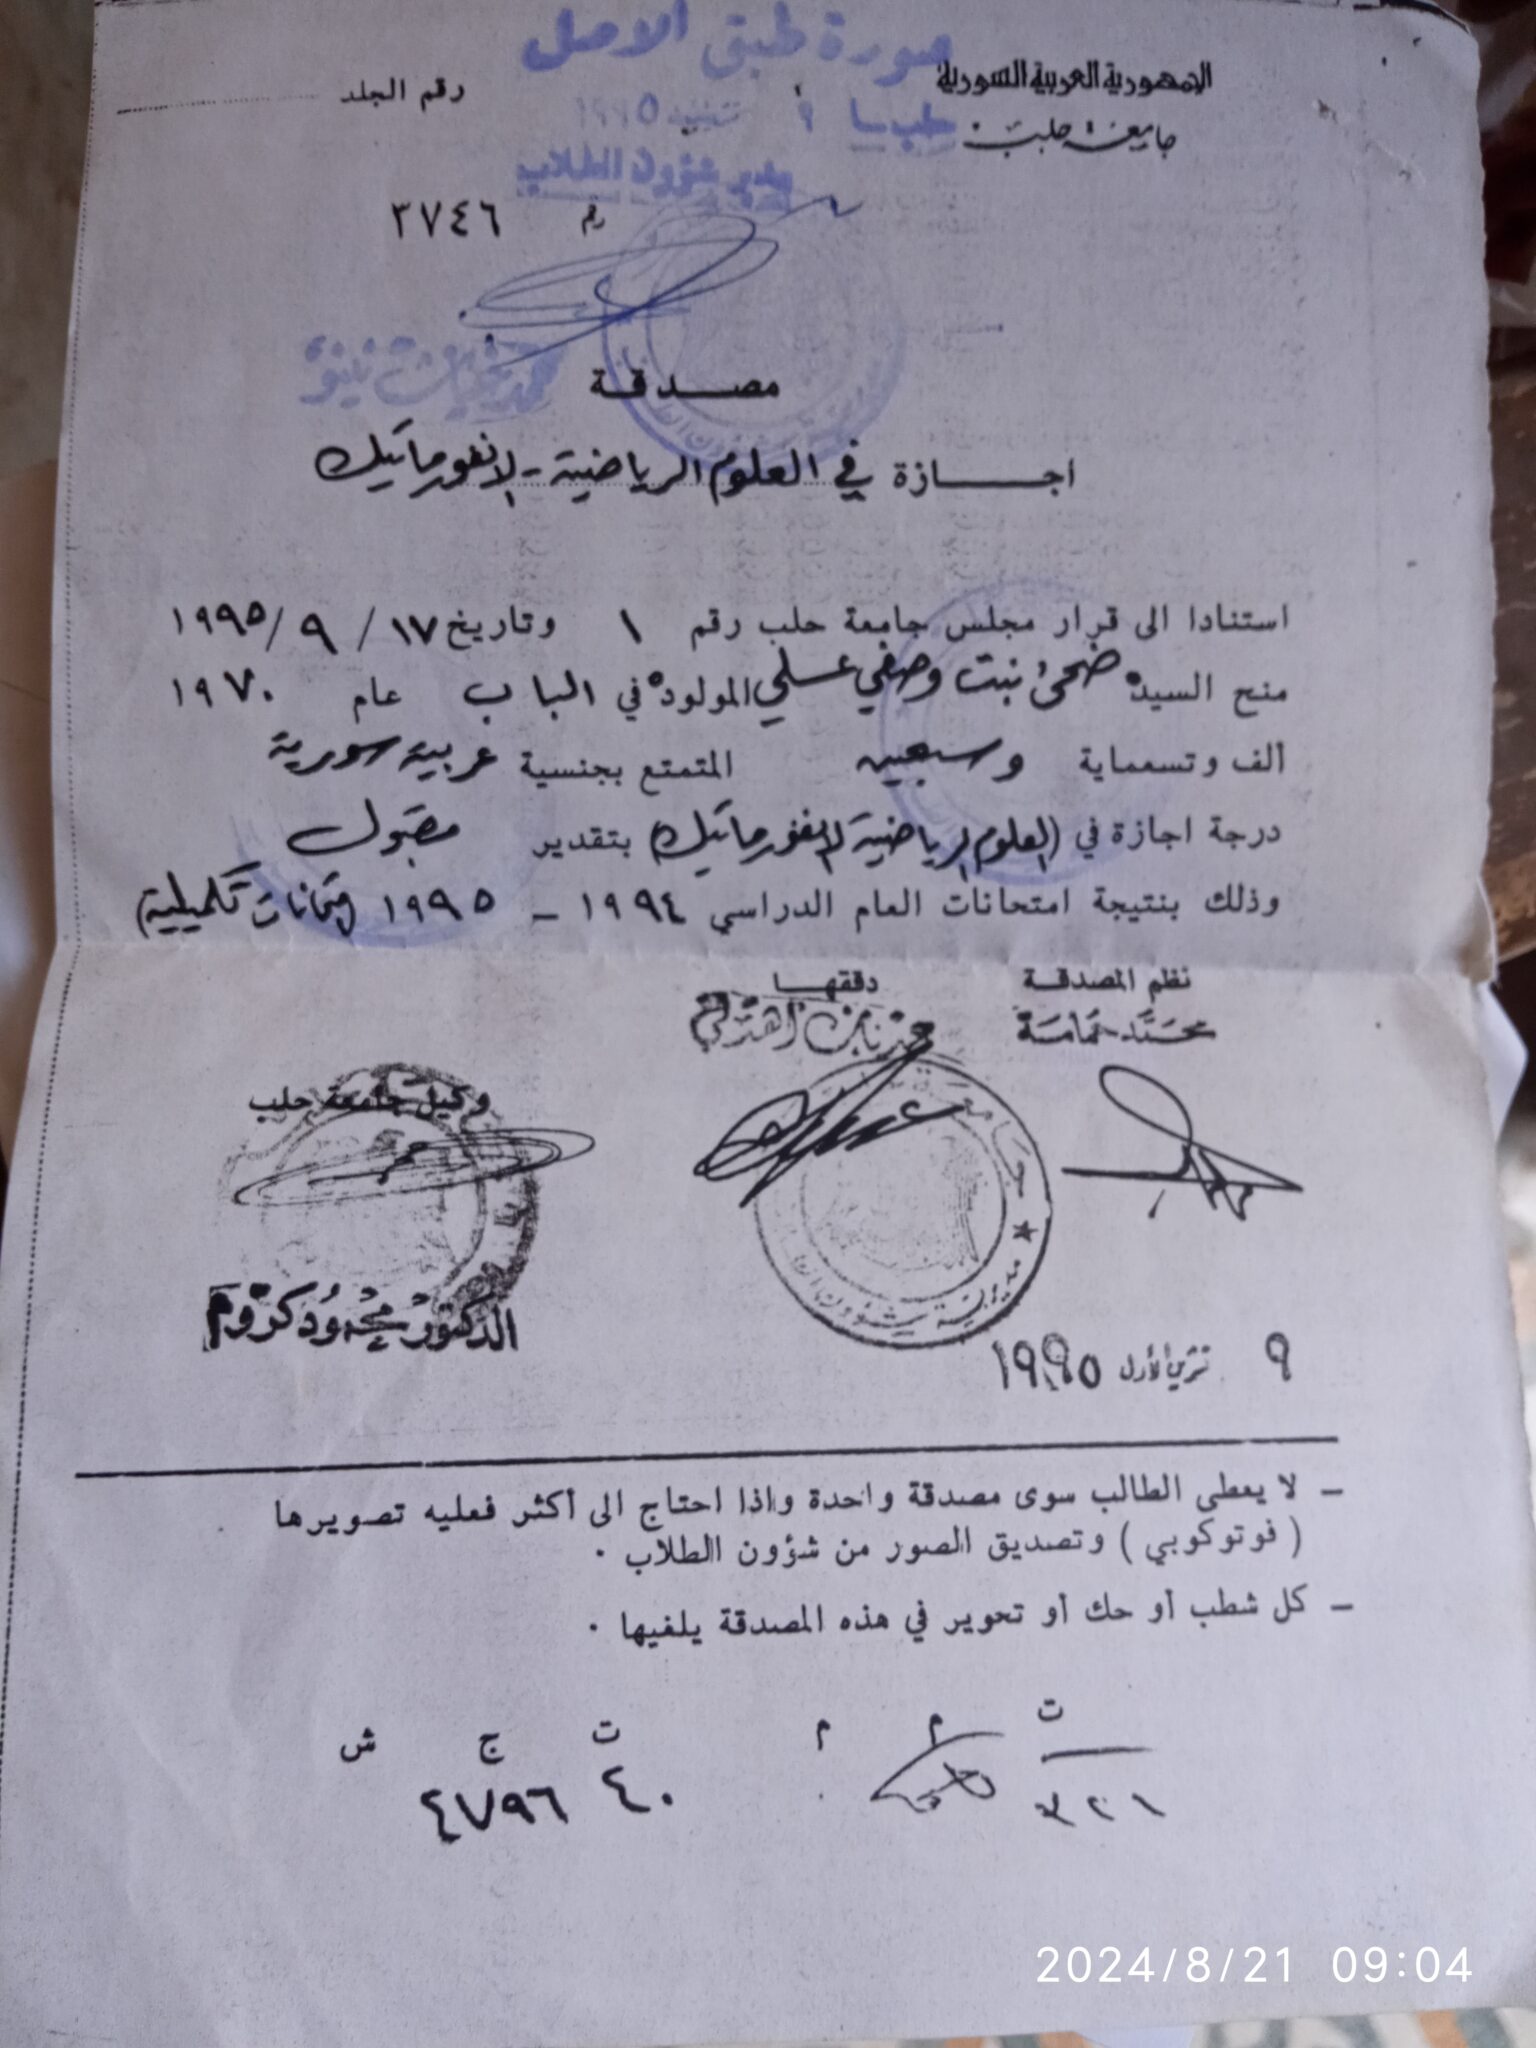 صورة طبق الاصل
الجمهورية العربية السورية
رقم الجلد
جامعة حلب
طب سا ٩ تشرين ١٩٩٥
مدير شؤون الطلاب
رقم ٣٧٤٦
مصدقة
اجازة في العلوم الرياضية - الانفورماتيك
استنادا الى قرار مجلس جامعة حلب رقم ١ وتاريخ ١٧ / ٩ / ١٩٩٥
منح السيدة ضحى بنت وصفي عسلي المولودة في الباب عام ١٩٧٠
ألف وتسعماية وسبعين المتمتع بجنسية عربية سورية
درجة اجازة في (العلوم الرياضية الانفورماتيك) بتقدير مقبول
وذلك بنتيجة امتحانات العام الدراسي ١٩٩٤ - ١٩٩٥ (امتحانات تكميلية)
نظم المصدقة
دققها
محمد حمامة
وكيل جامعة حلب
جامعة
مديرية شؤون
الدكتور محمود كروم
٩ تشرين الأول ١٩٩٥
- لا يعطى الطالب سوى مصدقة واحدة واذا احتاج الى أكثر فعليه تصويرها
( فوتوكوبي ) وتصديق الصور من شؤون الطلاب .
- كل شطب أو حك أو تحوير في هذه المصدقة يلغيها .
ت م م ت ج ش
٤٠ ٤٧٩٦
2024/8/21 09:04